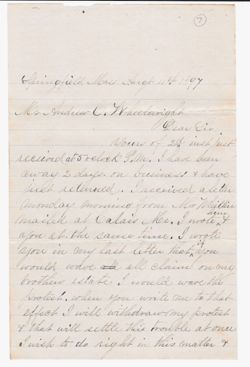 7
Springfield Mass. Sept 4th 1897
Mr. Andrew C.
Dear Sir
Yours of 2nd inst just
received at 5 o'clock P.M. I have been
away 2 days on business & have
just returned. I received a letter
Monday morning from Mr.
Calais Me. I wrote
you at the same time. I wrote
you in my last letter that if you
would wave all claim on my
brothers estate I would wave the
protest. when you wrote me to that
effect I will withdraw my protest
& that will settle this trouble at once
I wish to do right in this matter &